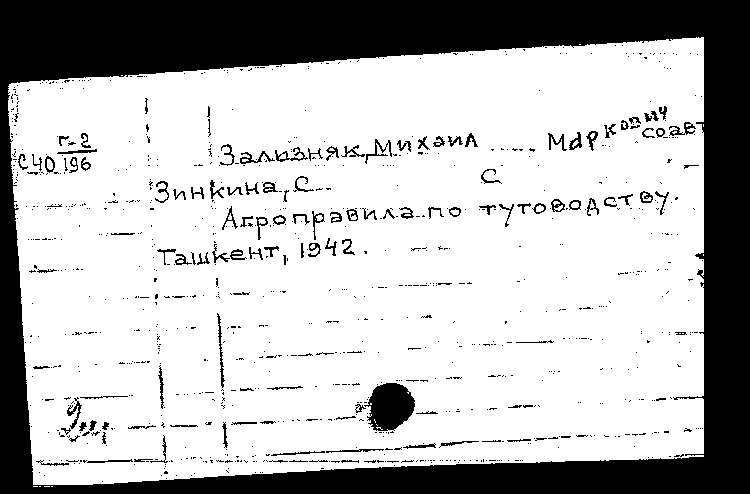 г-2
С40 196
Зализняк, Михаил ..... Мдр кому
соавт
Зинкина, С. С
Агроправила по тутоводству.
Ташкент, 1942.